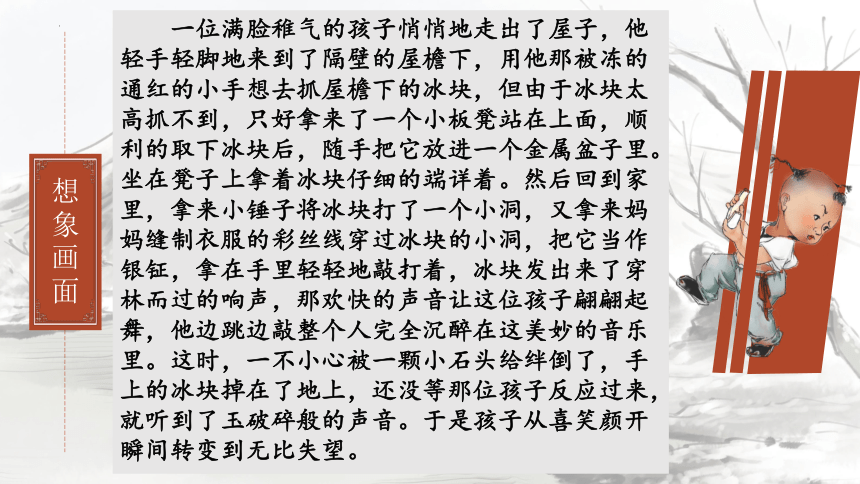 想象画面
一位满脸稚气的孩子悄悄地走出了屋子，他
轻手轻脚地来到了隔壁的屋檐下，用他那被冻的
通红的小手想去抓屋檐下的冰块，但由于冰块太
高抓不到，只好拿来了一个小板凳站在上面，顺
利的取下冰块后，随手把它放进一个金属盆子里。
坐在凳子上拿着冰块仔细的端详着。然后回到家
里，拿来小锤子将冰块打了一个小洞，又拿来妈
妈缝制衣服的彩丝线穿过冰块的小洞，把它当作
银钲，拿在手里轻轻地敲打着，冰块发出来了穿
林而过的响声，那欢快的声音让这位孩子翩翩起
舞，他边跳边敲整个人完全沉醉在这美妙的音乐
里。这时，一不小心被一颗小石头给绊倒了，手
上的冰块掉在了地上，还没等那位孩子反应过来，
就听到了玉破碎般的声音。于是孩子从喜笑颜开
瞬间转变到无比失望。